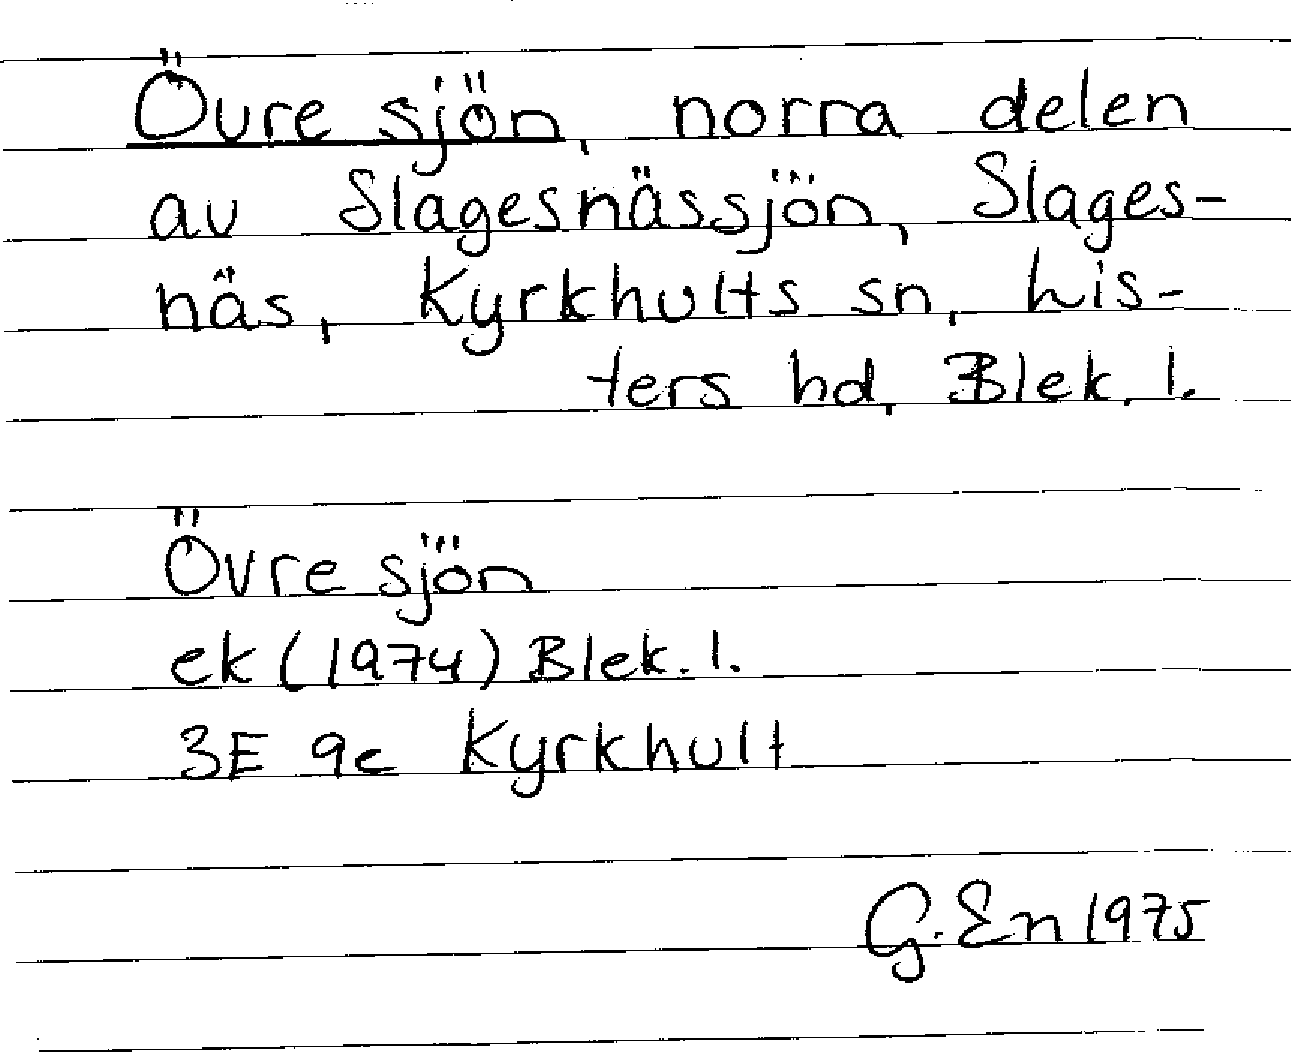 Övre sjön, norra delen
av Slagesnässjön, Slages-
näs, Kyrkhults sn, Lis-
ters hd, Blek. l.
Övre sjön
ek (1974) Blek. l.
3E 9c Kyrkhult
G. En 1975